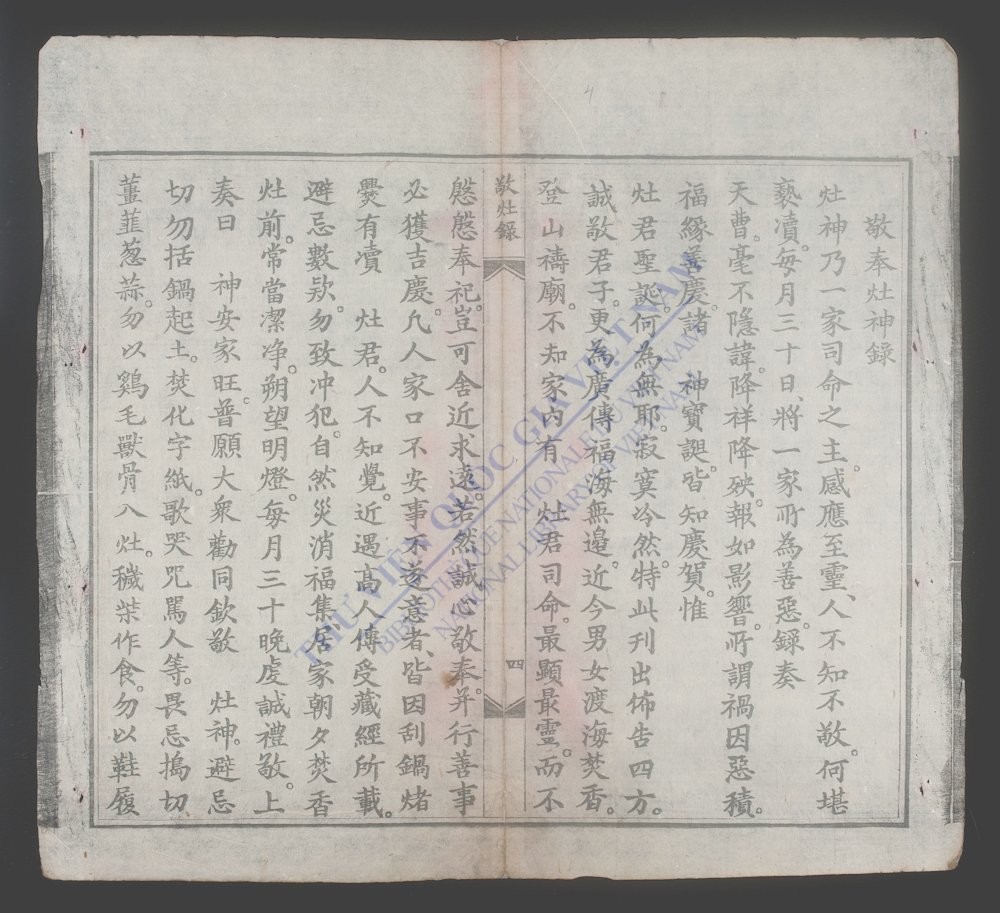 敬奉灶神錄
灶神乃一家司命之主。感應至靈、人不知不敬。何堪
褻瀆。每月三十日、將一家所為善惡。錄奏
天曹。毫不隱諱。降祥降殃。報如影響。所謂禍因惡積。
福緣善慶。諸 神寶誕。皆知慶賀。惟
灶君聖誕。何為無耶。寂寞冷然。特此刊出佈告四方。
誠敬君子。更為廣傳福海無邊。近今男女渡海焚香。
登山禱廟。不知家內有 灶君司命。最顯最靈。而不
敬灶錄
四
慇慇奉祀。豈可舍近求遠。若然誠心敬奉。并行善事
必獲吉慶。凡人家口不安事不遂意者、皆因刮鍋煑
爨有瀆 灶君。人不知覺。近遇高人傳受藏經所載。
避忌數款。勿致冲犯。自然災消福集。居家朝夕焚香
灶前。常當潔净。朔望明燈。每月三十晚虔誠禮敬。上
奏曰 神安家旺。普願大衆勸同欽敬 灶神。避忌
切勿括鍋起土。焚化字紙。歌哭咒罵人等。畏忌搗切、
薑韮葱蒜。勿以鷄毛獸骨入灶。穢柴作食。勿以鞋履
THƯ VIỆN QUỐC GIA VIỆT NAM
BIBLIOTHEQUE NATIONALE DU VIETNAM
NATIONAL LIBRARY OF VIETNAM